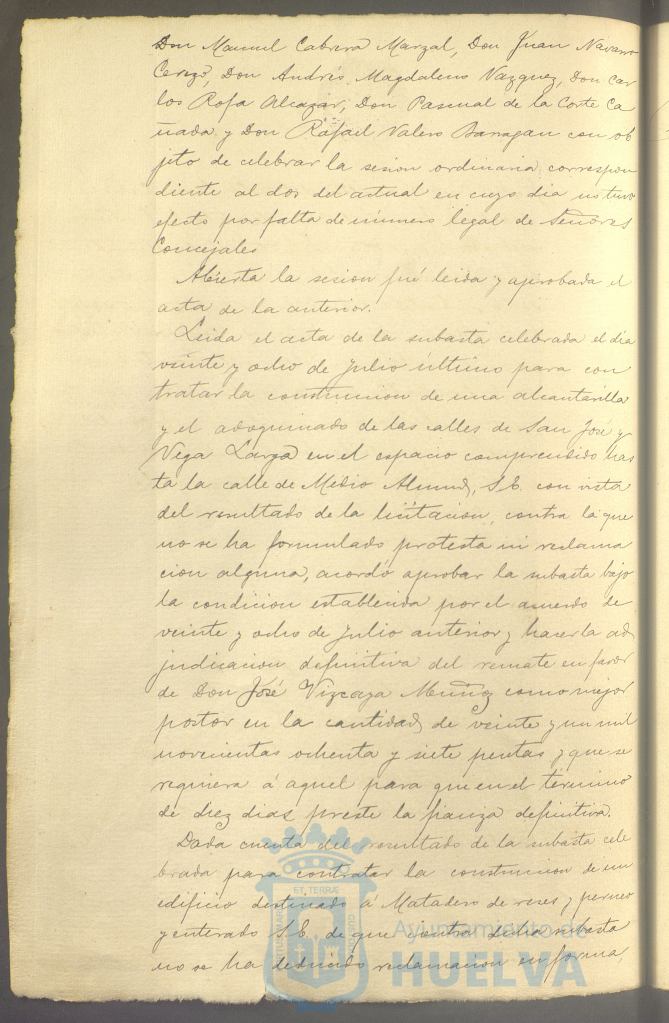 Don Manuel Cabrera Marzal, Don Juan Navarro
Cerezo, Don Andrés Magdaleno Vazquez, Don Car
los Rofa Alcazar, Don Pascual de la Corte Ca
ñada y Don Rafael Valero Barragan con ob
jeto de celebrar la sesion ordinaria correspon
diente al dos del actual en cuyo dia no tuvo
efecto por falta de número legal de Señores
Concejales
Abierta la sesion fué leida y aprobada el
acta de la anterior.
Leida el acta de la subasta celebrada el dia
veinte y ocho de Julio último para con
tratar la construccion de una alcantarilla
y el adoquinado de las calles de San José y
Vega Larga en el espacio comprendido has
ta la calle de Medio Almud, S.E. con vista
del resultado de la licitacion, contra la que
no se ha formulado protesta ni reclama
cion alguna, acordó aprobar la subasta bajo
la condicion establecida por el acuerdo de
veinte y ocho de Julio anterior y hacer la ad
judicacion definitiva del remate en favor
de Don José Vizcaya Muñoz como mejor
postor en la cantidad de veinte y un mil
novecientas ochenta y siete pesetas y que se
requiera á aquel para que en el término
de diez dias preste la fianza definitiva.
Dada cuenta del resultado de la subasta cele
brada para contratar la construccion de un
edificio destinado á Matadero de reses y
y enterado S.E. de que contra dicha subasta
no se ha deducido reclamacion en forma,
ET TERRÆ
Ayuntamiento de
HUELVA